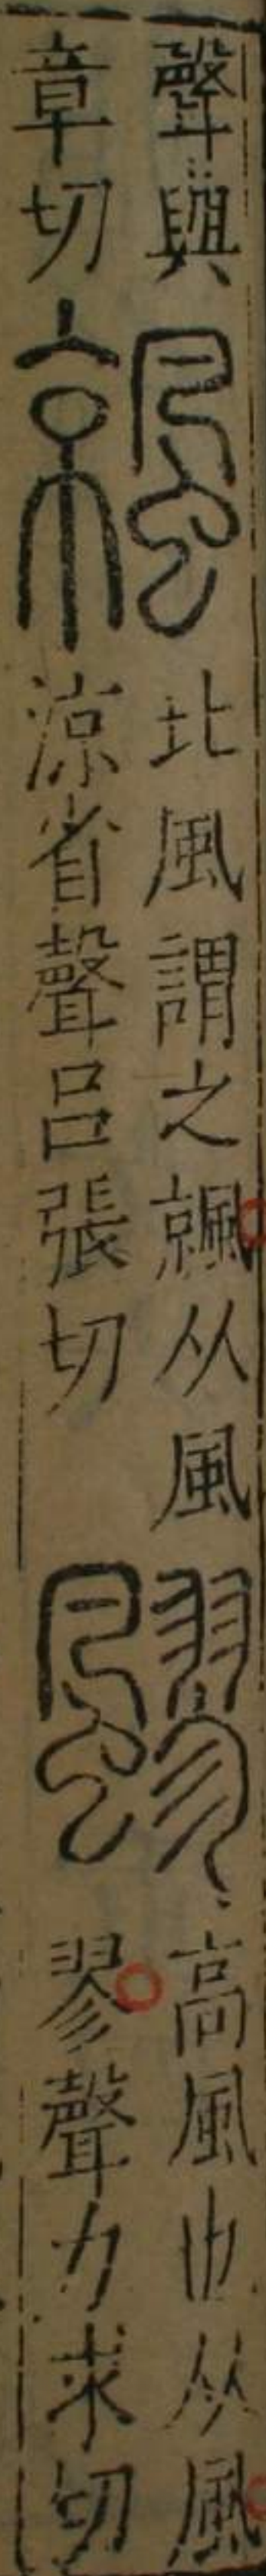 聲與
章切
䬅
北風謂之䬅从風
涼省聲呂張切
飂
高風也从風
翏聲力求切